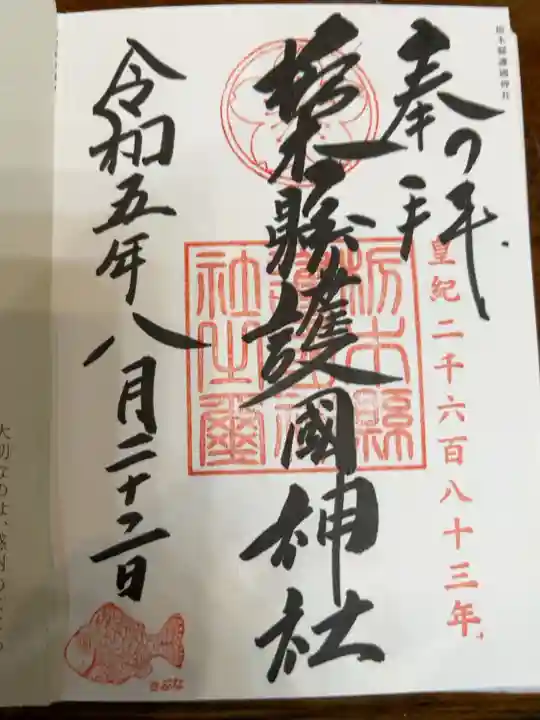 栃木縣護國神社
奉拝
皇紀二千六百八十三年
栃木縣護國神社
栃木縣護國神社之璽
令和五年八月二十二日
きぶな